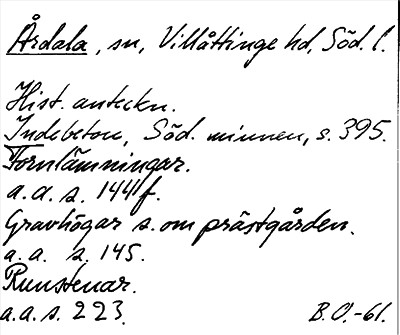 Årdala, sn, Villåttinge hd, Söd. l.
Hist. anteckn.
Indebetou, Söd. minnen, s. 395.
Fornlämningar.
a. a. s. 144 f.
Gravhögar s. om prästgården.
a. a. s. 145.
Runstenar.
a. a. s. 223.
B.O.-61.